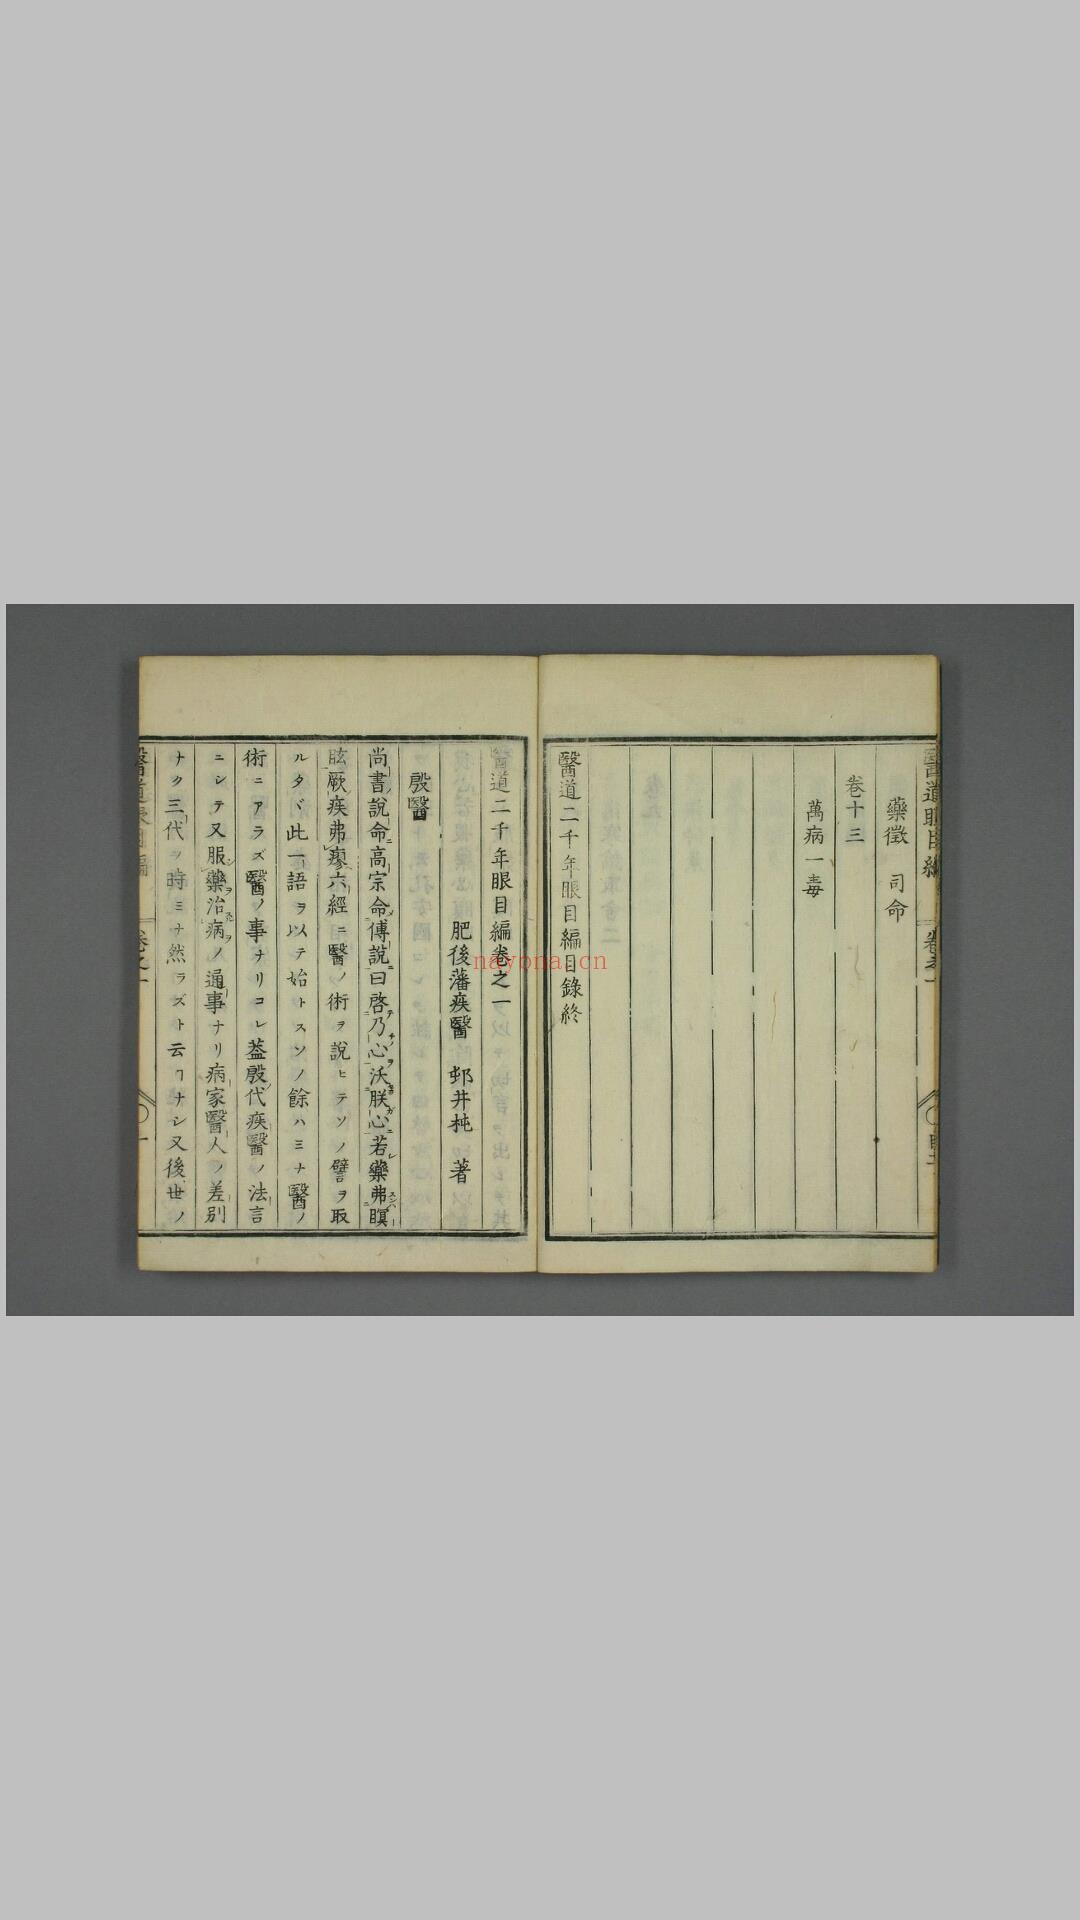 藥徵 司命
卷十三
萬病一毒
醫道二千年眼目編目錄終
醫道二千年眼目編卷之一
肥後藩疾醫 邨井杶 著
殷醫
尚書說命高宗命傅說曰啓乃心沃朕心若藥弗瞑
眩厥疾弗瘳六經ニ醫ノ術ヲ說ヒテソノ譬ヲ取
ルタバ此一語ヲ以テ始トスソノ餘ハミナ醫ノ
術ニアラズ醫ノ事ナリコレ蓋殷代疾醫ノ法言
ニシテ又服藥治病ノ通事ナリ病家醫人ノ差別
ナク三代ノ時ミナ然ラズト云ヿナシ又後世ノ
nayona.cn